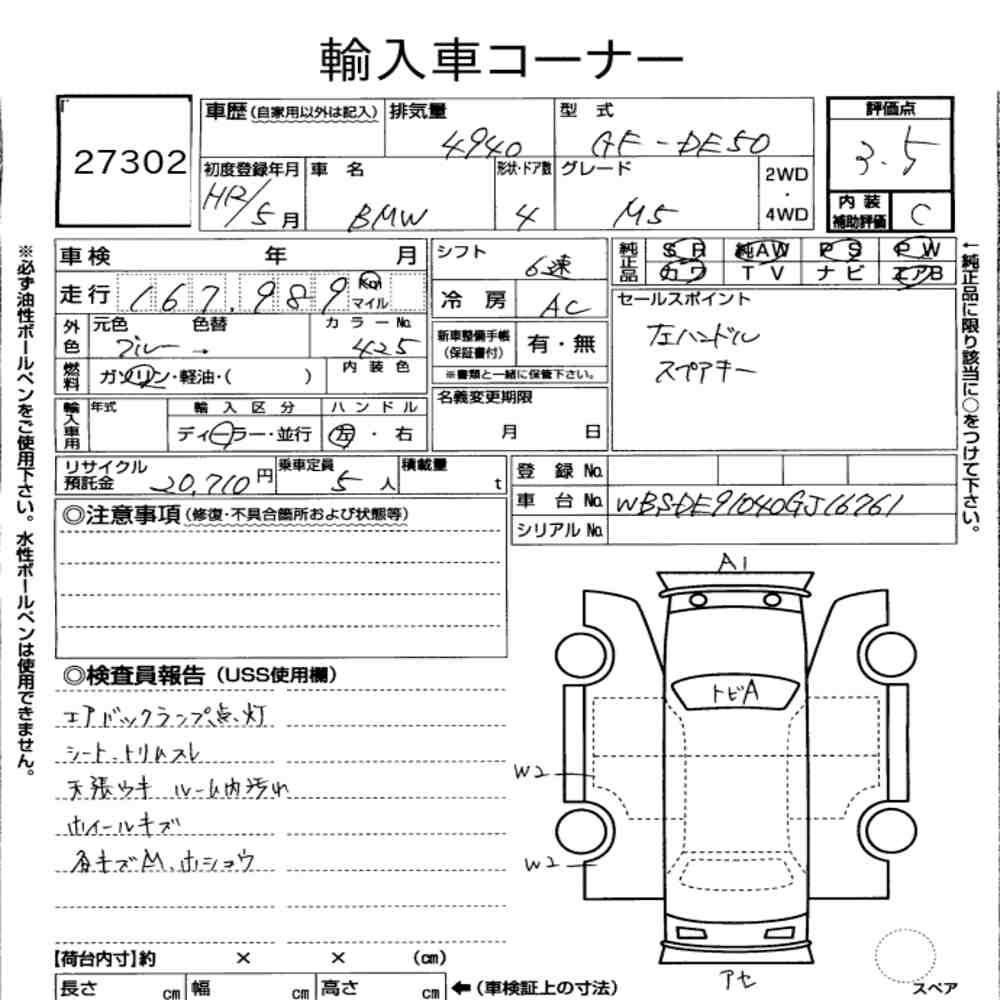 輸入車コーナー
27302
車歴(自家用以外は記入) 排気量 4940 型式 GF-DE50 評価点 3.5
初度登録年月 5月 車名 BMW 形状・ドア数 4 グレード M5 2WD・4WD 内装補助評価 C
車検 年 月 シフト 6速 純正品 SR 純AW PS PW
走行 167,989 km マイル 冷房 AC カワ TV ナビ エアB
外色 元色 ブルー → 色替 カラーNo. 425 新車整備手帳(保証書付) 有・無 セールスポイント
左ハンドル
スペアキー
燃料 ガソリン・軽油・( ) 内装色 ※書類と一緒に保管下さい。
輸入車用 年式 輸入区分 ディーラー・並行 ハンドル 左・右 名義変更期限 月 日
リサイクル預託金 20,710円 乗車定員 5人 積載量 t 登録No.
車台No. WBSDE91040GJ16761
シリアルNo.
※必ず油性ボールペンをご使用下さい。水性ボールペンは使用できません。
←純正品に限り該当に○をつけて下さい。
◎注意事項(修復・不具合箇所および状態等)
◎検査員報告(USS使用欄)
エアバックランプ点灯
シート、トリムスレ
天張ウキ ルーム内汚れ
ホイールキズ
各キズM、ホショウ
A1
トビA
W2
W2
アセ
スペア
【荷台内寸】約 × × (cm)
長さ cm 幅 cm 高さ cm ←(車検証上の寸法)